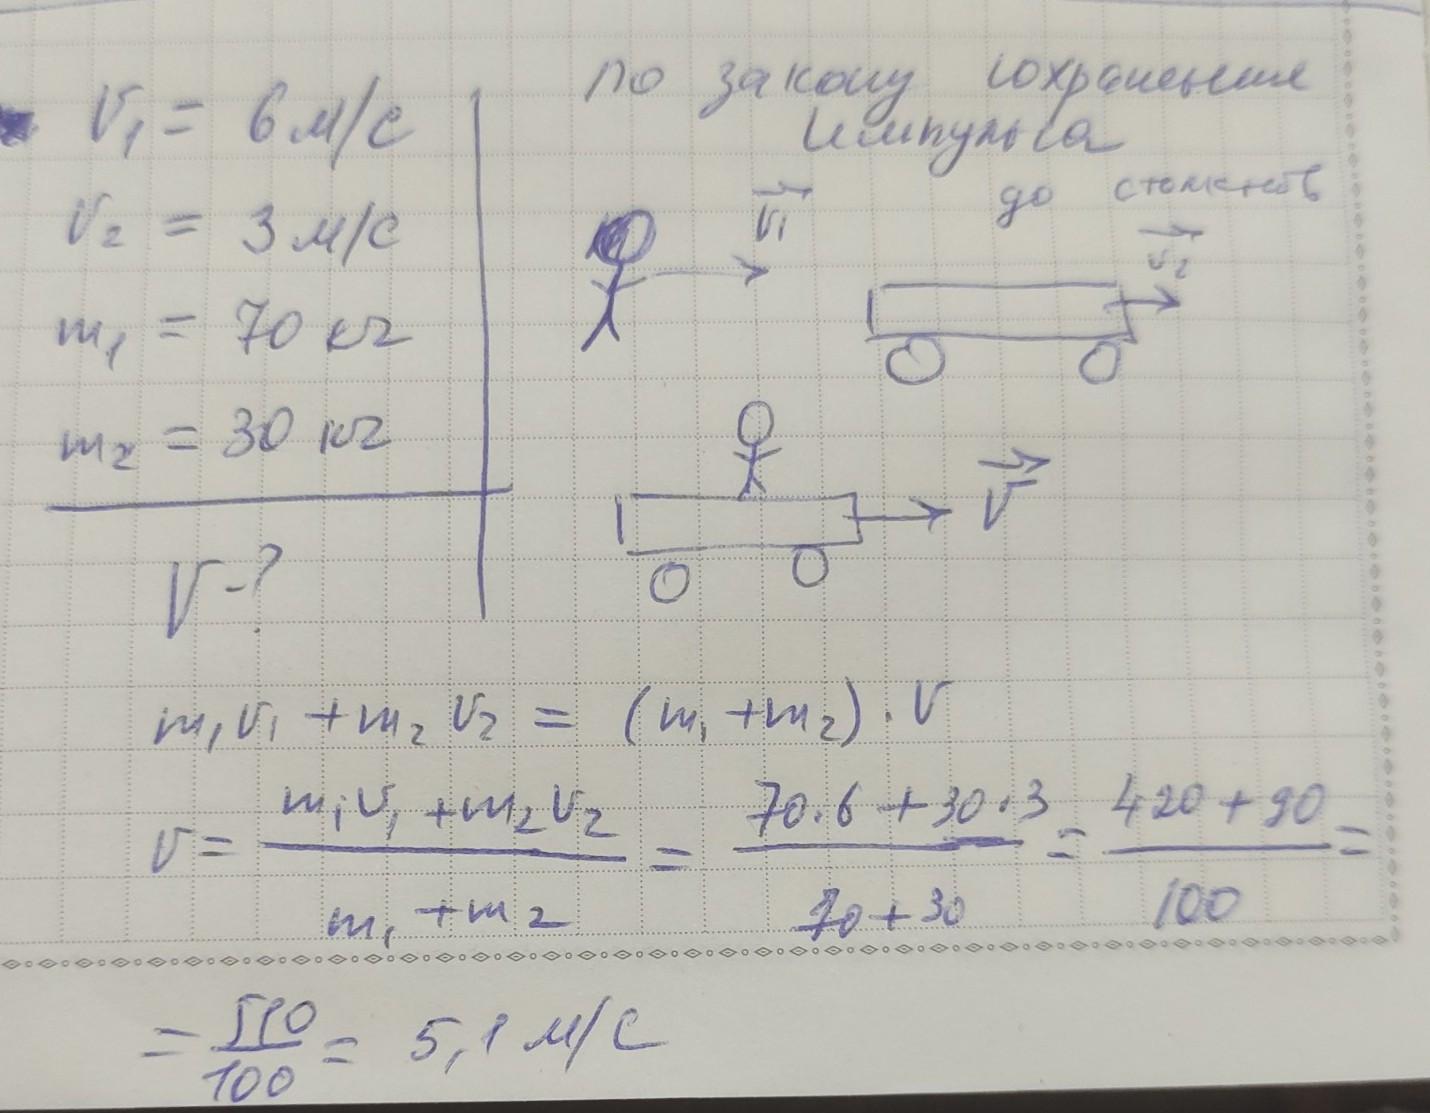 V₁ = 6 м/с
V₂ = 3 м/с
m₁ = 70 кг
m₂ = 30 кг
V-?
по закону сохранения
импульса
до
V₁
V₂
V
m₁V₁ + m₂V₂ = (m₁ + m₂) · V
V = (m₁V₁ + m₂V₂) / (m₁ + m₂) = (70·6 + 30·3) / (70 + 30) = (420 + 90) / 100 =
= 510/100 = 5,1 м/с